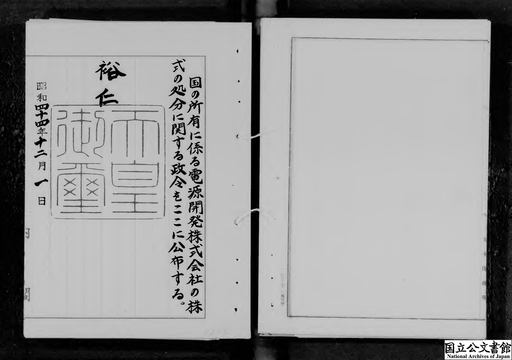 国の所有に係る電源開発株式会社の株
式の処分に関する政令をここに公布する。
裕仁
天皇
御璽
昭和四十四年十二月一日
国立公文書館
National Archives of Japan